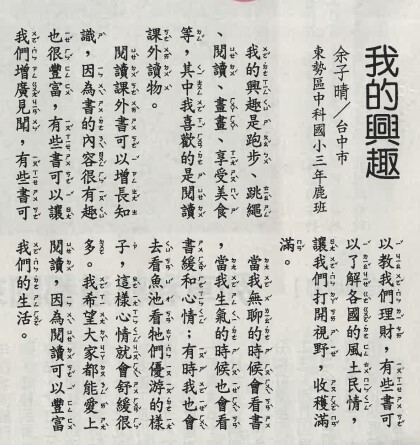 我的興趣
余子晴/台中市
東勢區中科國小三年鹿班
我的興趣是跑步、跳繩
、閱讀、畫畫、享受美食
等，其中我喜歡的是閱讀
課外讀物。
閱讀課外書可以增長知
識，因為書的內容很有趣
也很豐富，有些書可以讓
我們增廣見聞，有些書可
以教我們理財，有些書可
以了解各國的風土民情，
讓我們打開視野，收穫滿
滿。
當我無聊的時候會看書
，當我生氣的時候也會看
書緩和心情；有時我也會
去看魚池看牠們優游的樣
子，這樣心情就會舒緩很
多。我希望大家都能愛上
閱讀，因為閱讀可以豐富
我們的生活。